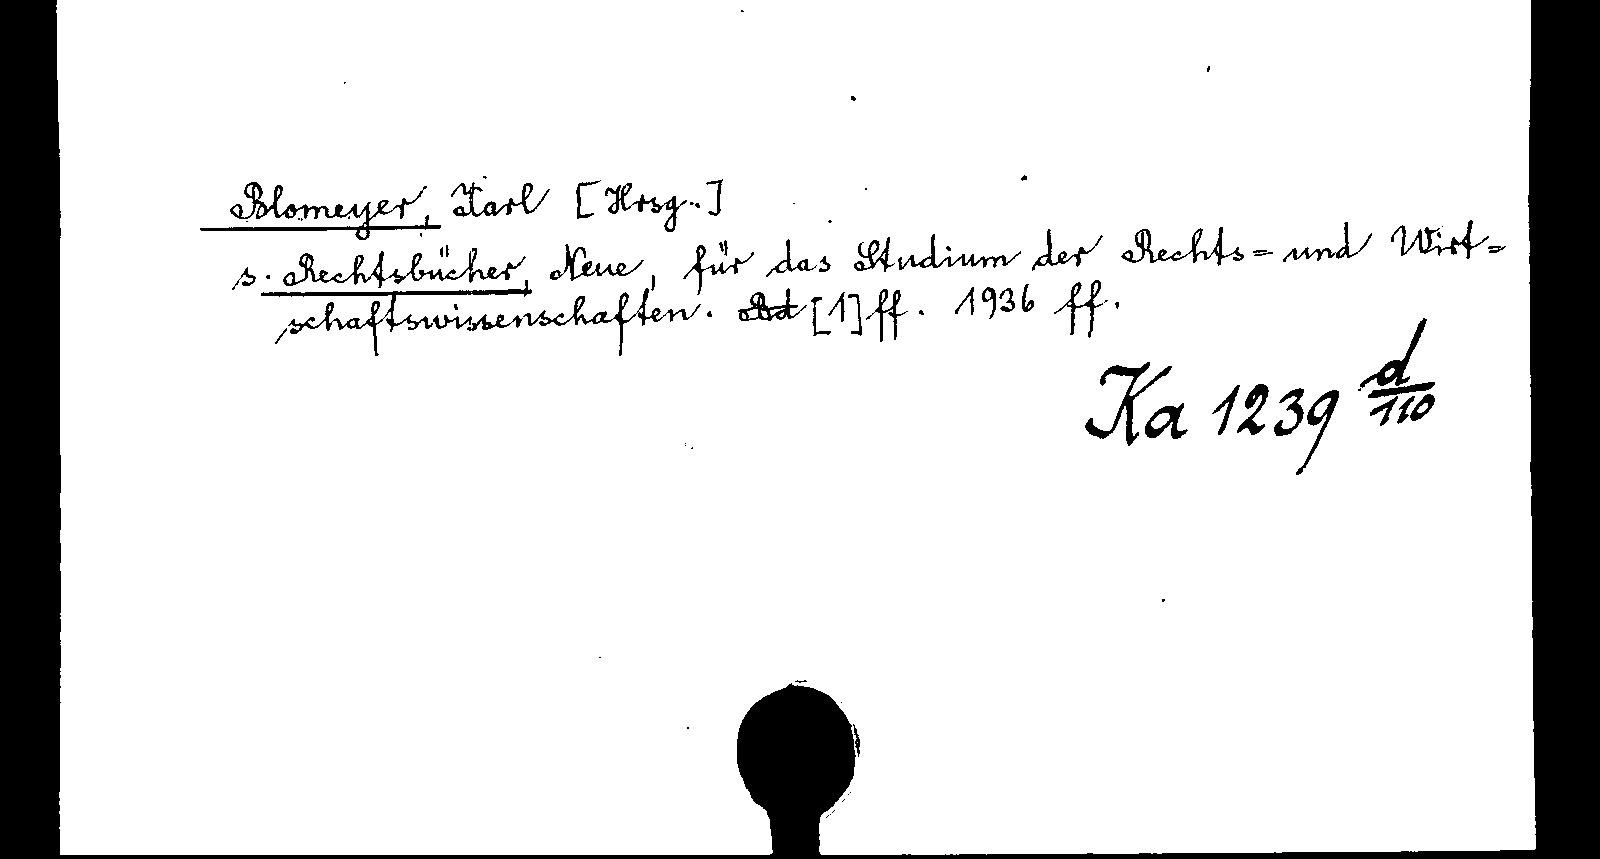 Blomeyer, Karl [Hrsg..]
s. Rechtsbücher, Neue, für das Studium der Rechts= und Wirt=
schaftswissenschaften. Bd [1] ff. 1936 ff.
Ka 1239 d/110